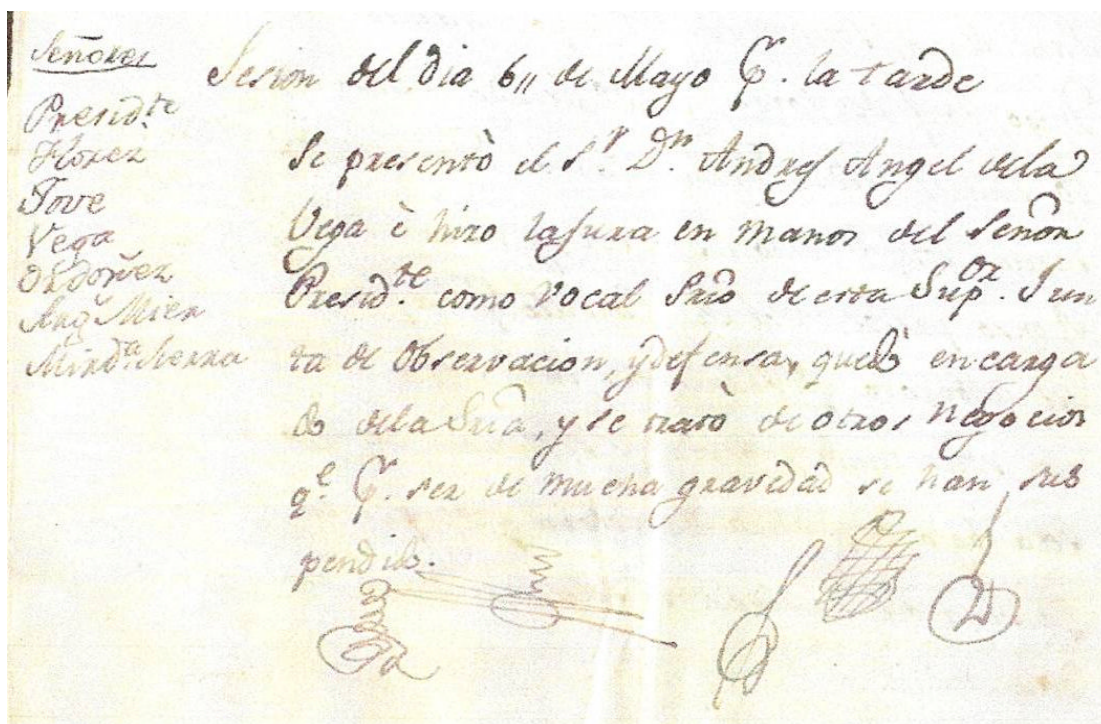 Señores
Presid.te
Florez
Jove
Vega
Ordoñez
Arg. Mier
Mird.a Sierra
Sesion del dia 6,, de Mayo P.r la tarde
Se presentò el S.r D.n Andres Angel dela
Vega è hizo la jura en manos del Señor
Presid.te como Vocal Srio de esta Sup.or Jun
ta de Observacion, y defensa, quedò encarga
do dela Sria, y se tratò de otros negocios
q.e P.r ser de mucha gravedad se han sus
pendido.